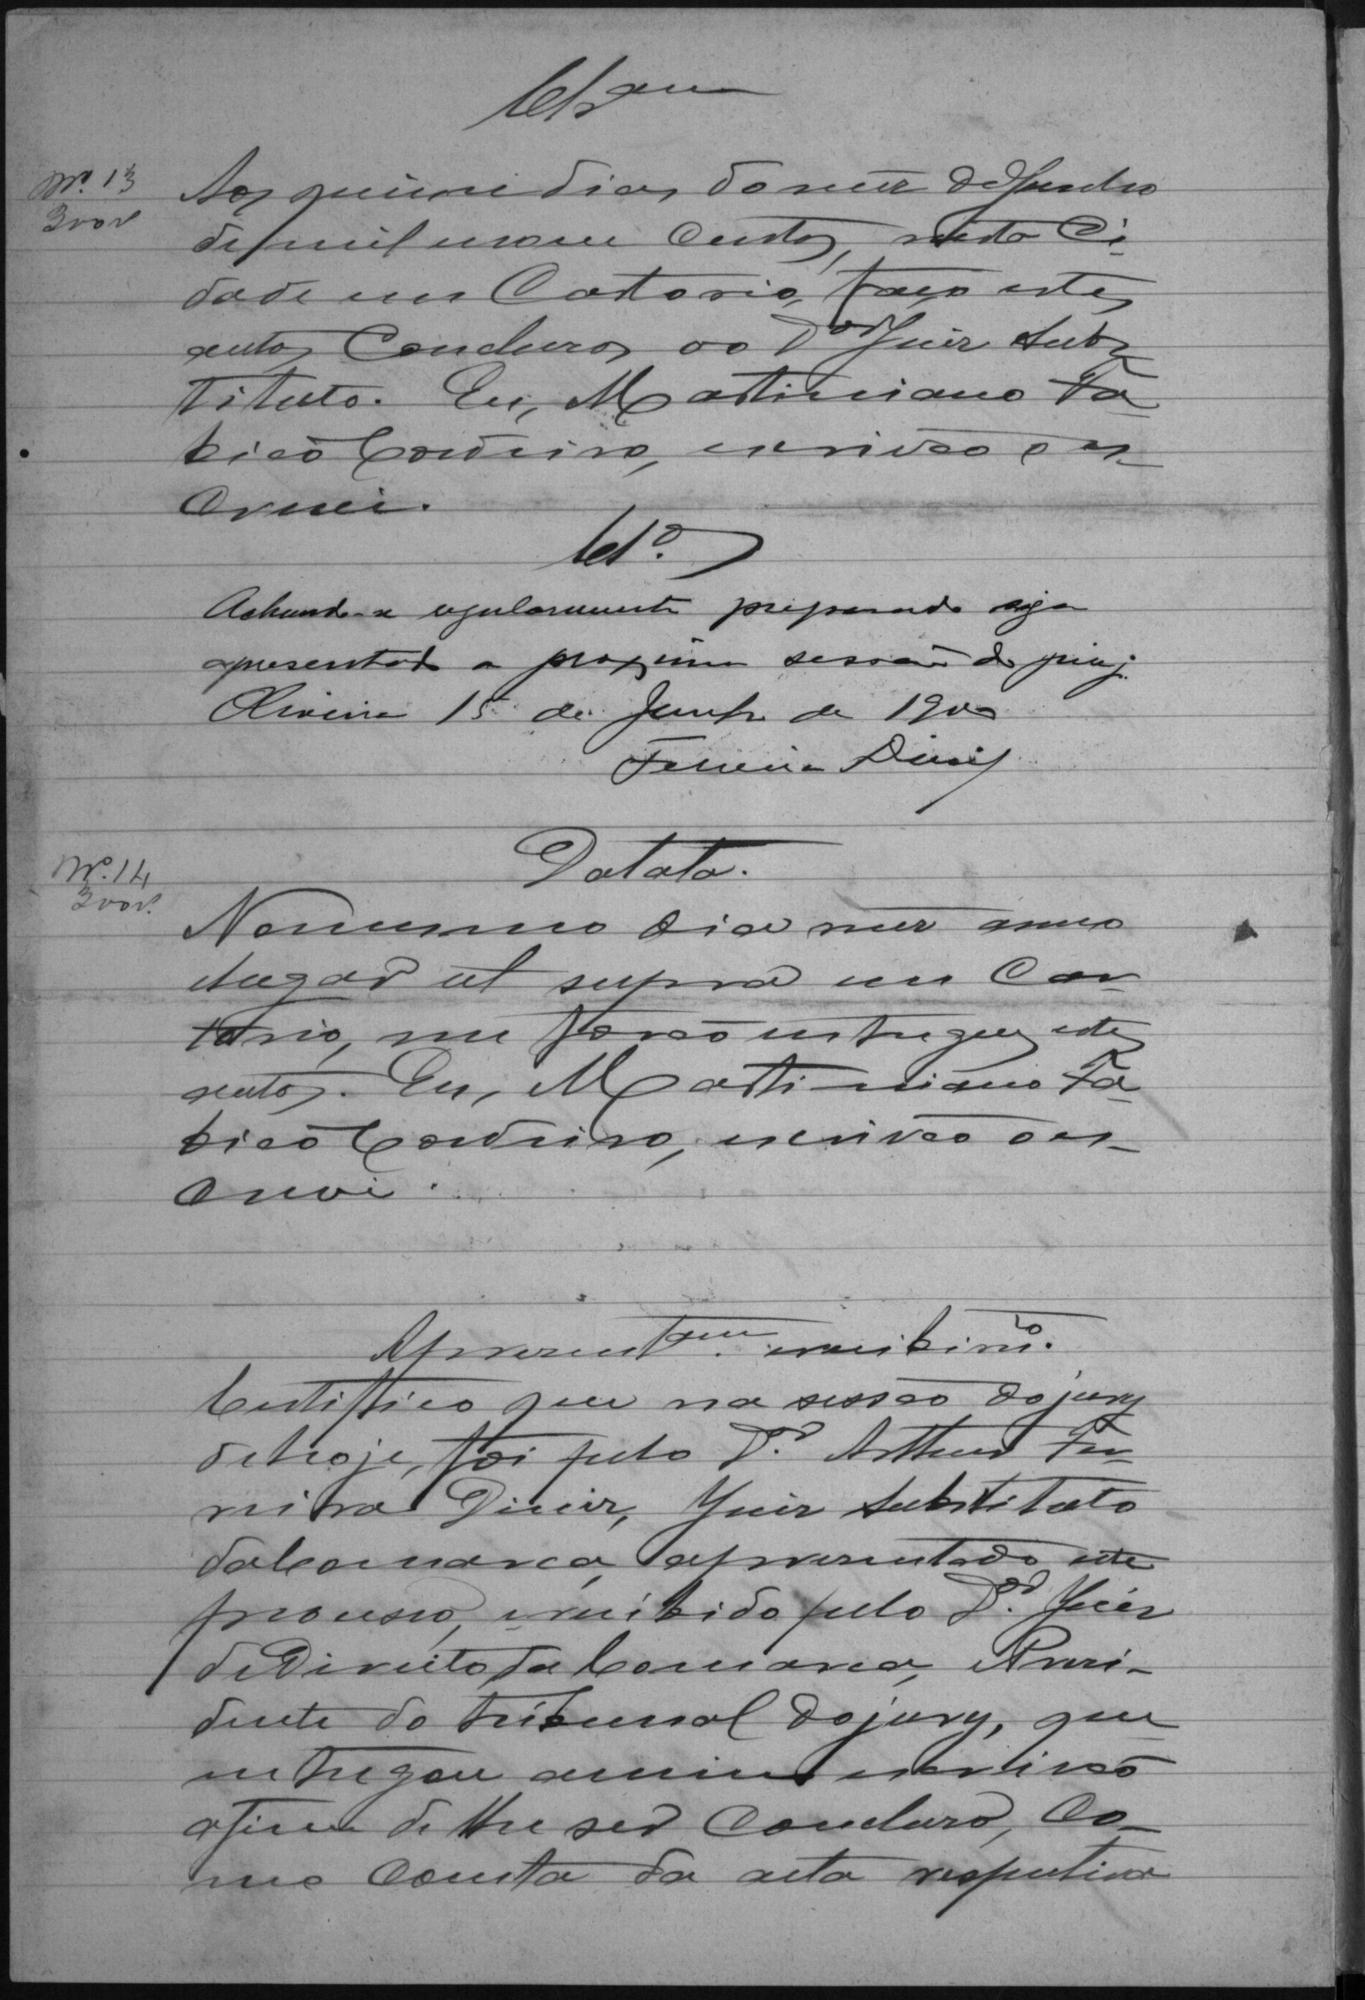 Clsam
Nº. 13
3 vol
Aos quinze dias do mez de Junho
de mil nove centos, nesta Ci-
dade em Cartorio, faço estes
autos Concluzos ao Dor Juiz Subs-
tituto. Eu, Martiniano Fa-
bico Cordeiro, escrivão o es-
crevi.
Clo.
Achando-se regularmente preparado seja
apresentado a proxima sessão do jury.
Oliveira 15 de Junho de 1900
Ferreira Diniz
Datata.
Nº. 14
3 vol.
No mesmo dia mez anno
lugar ut supra em Car-
torio, me forão entregues estes
autos. Eu, Martiniano Fa-
bico Cordeiro, escrivão o es-
crevi.
Apresentam. e recibimto.
Certifico que na sessão do jury
de hoje, foi pelo Dr. Arthur Fer-
reira Diniz, Juiz Substituto
da Comarca, apresentado este
processo, e recibido pelo Dor. Juiz
de Direito da Comarca, Presi-
dente do tribunal do jury, que
entregou a mim escrivão
afim de lhe ser Concluzo, Co-
mo Consta da acta respectiva